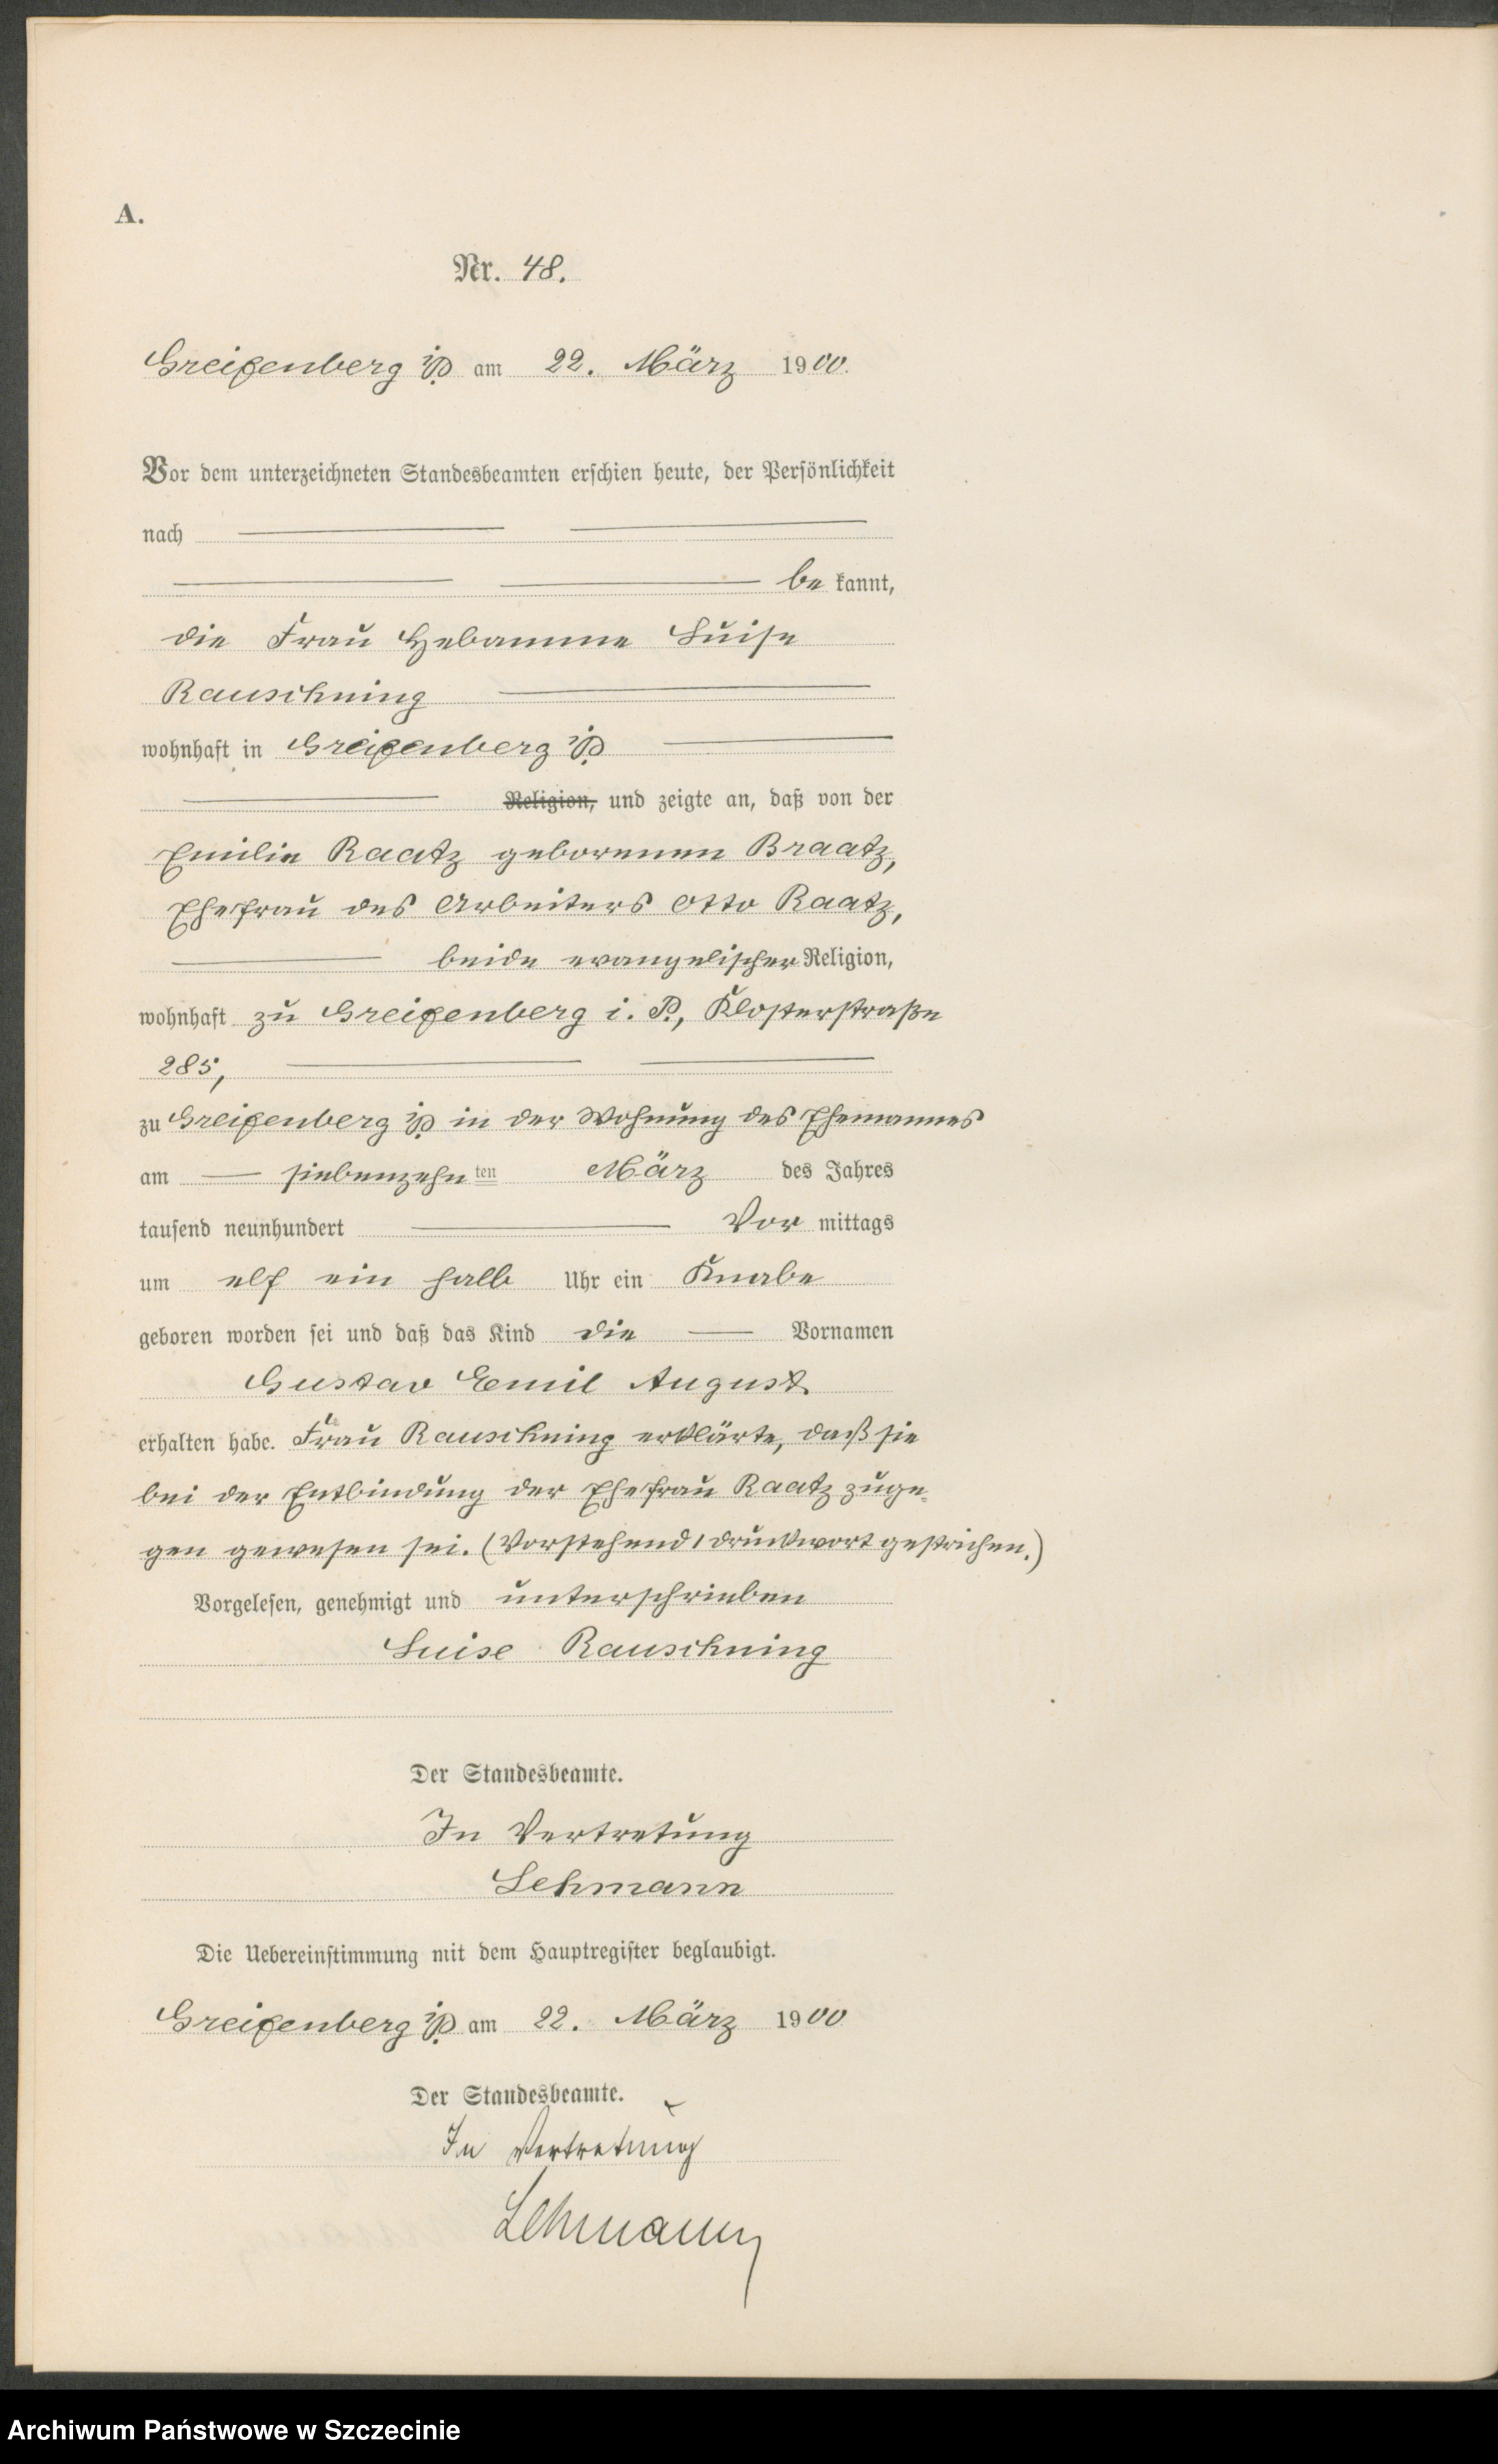 A.
Nr. 48.
Greifenberg i/P. am 22. März 1900.
Vor dem unterzeichneten Standesbeamten erschien heute, der Persönlichkeit
nach
be kannt,
die Frau Hebamme Luise
Rauschning
wohnhaft in Greifenberg i/P.
Religion, und zeigte an, daß von der
Emilie Raatz geborenen Braatz,
Ehefrau des Arbeiters Otto Raatz,
beide evangelischer Religion,
wohnhaft zu Greifenberg i. P., Klosterstraße
285,
zu Greifenberg i/P. in der Wohnung des Ehemannes
am siebenzehn ten März des Jahres
tausend neunhundert Vor mittags
um elf ein halb Uhr ein Knabe
geboren worden sei und daß das Kind die Vornamen
Gustav Emil August
erhalten habe. Frau Rauschning erklärte, daß sie
bei der Entbindung der Ehefrau Raatz zuge-
gen gewesen sei. (Vorstehend 1 Druckwort gestrichen.)
Vorgelesen, genehmigt und unterschrieben
Luise Rauschning
Der Standesbeamte.
In Vertretung
Lehmann
Die Uebereinstimmung mit dem Hauptregister beglaubigt.
Greifenberg i/P. am 22. März 1900
Der Standesbeamte.
In Vertretung
Lehmann
Archiwum Państwowe w Szczecinie